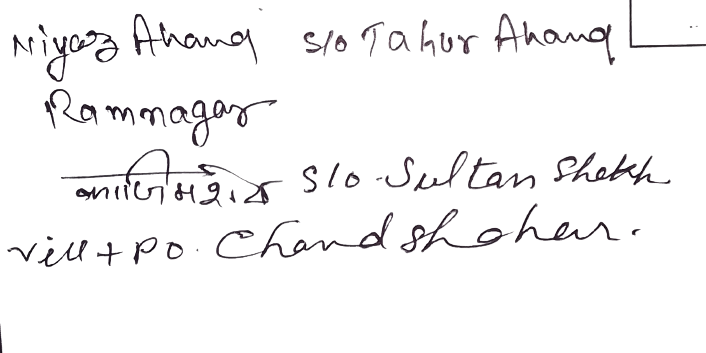 Niyaz Ahamad s/o Tahur Ahamad
Ramnagar
S/o Sultan Shekh
vill + PO. Chand shahar.